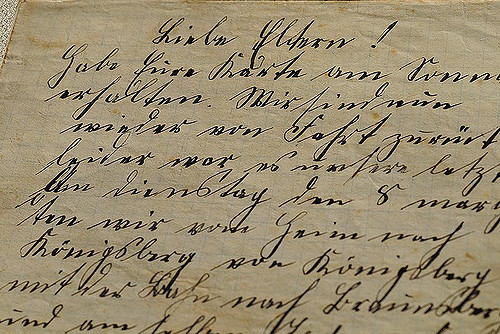 Liebe Eltern!
Habe Eure Karte am Sonn
erhalten. Wir sind nun
wieder von Fahrt zurück
leider war es unsere letzt
Am Dienstag den 8 mar
ten wir vom Heim nach
Königsberg von Königsberg
mit der Bahn nach Braunsber
und am